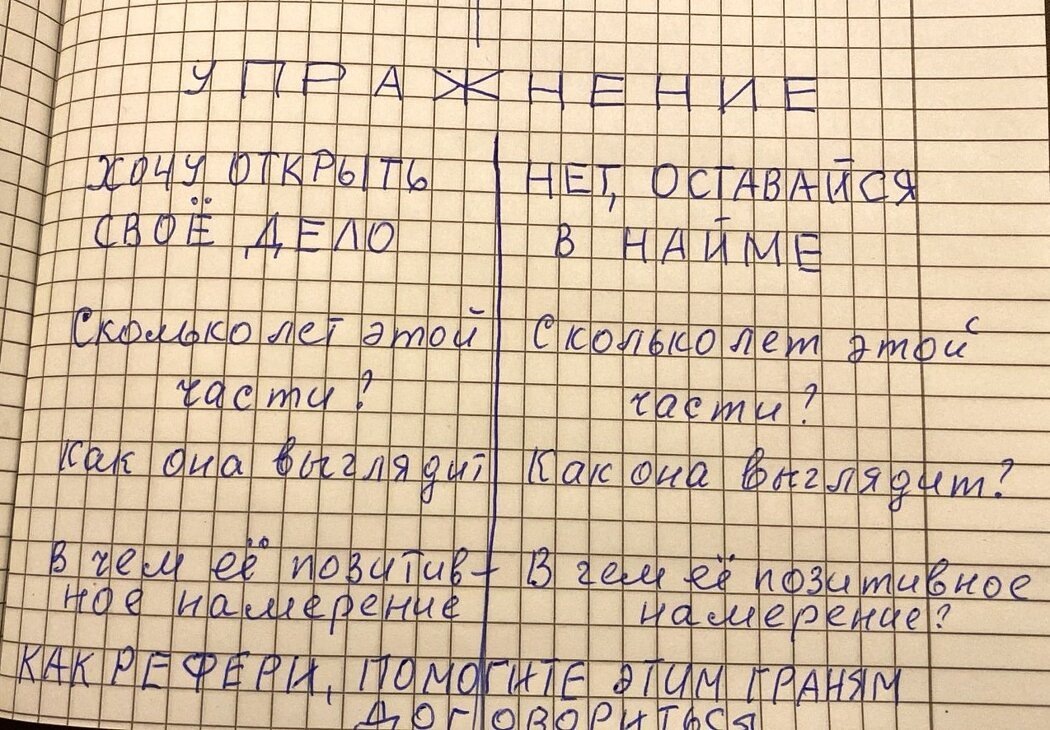 УПРАЖНЕНИЕ
ХОЧУ ОТКРЫТЬ
СВОЁ ДЕЛО
Сколько лет этой
части?
Как она выглядит
В чем её позитив-
ное намерение
НЕТ, ОСТАВАЙСЯ
В НАЙМЕ
Сколько лет этой с
части?
Как она выглядит?
В чем её позитивное
намерение?
КАК РЕФЕРИ, ПОМОГИТЕ ЭТИМ ГРАНЯМ
ДОГОВОРИТЬСЯ